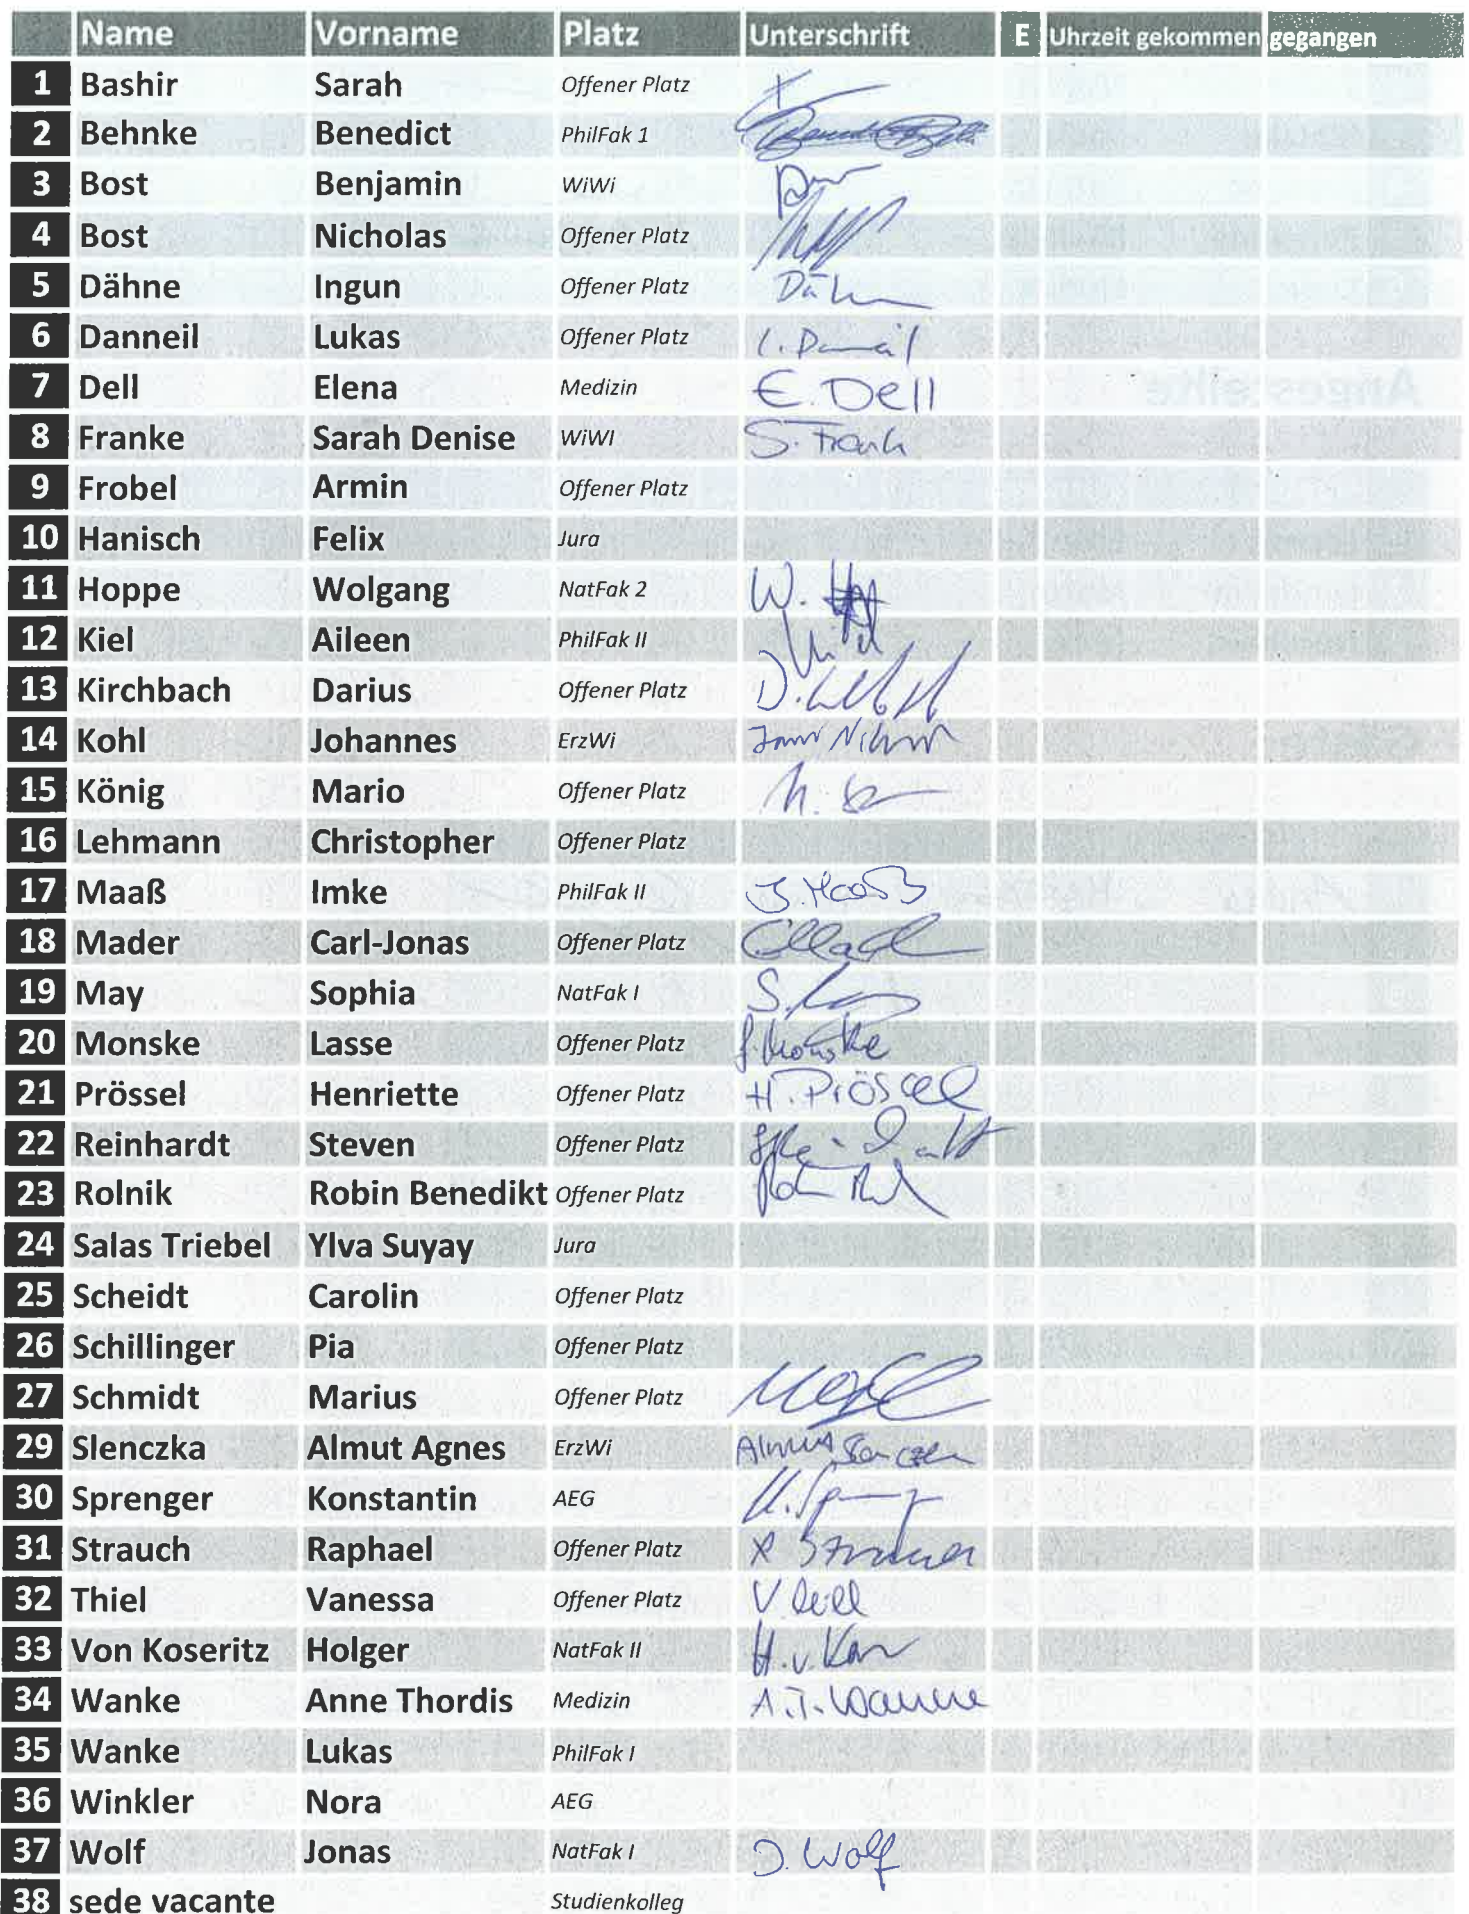 Name Vorname Platz Unterschrift E Uhrzeit gekommen gegangen
1 Bashir Sarah Offener Platz
2 Behnke Benedict PhilFak 1
3 Bost Benjamin WiWi
4 Bost Nicholas Offener Platz
5 Dähne Ingun Offener Platz
6 Danneil Lukas Offener Platz
7 Dell Elena Medizin E. Dell
8 Franke Sarah Denise WiWI S. Frank
9 Frobel Armin Offener Platz
10 Hanisch Felix Jura
11 Hoppe Wolgang NatFak 2 W.
12 Kiel Aileen PhilFak II
13 Kirchbach Darius Offener Platz D.
14 Kohl Johannes ErzWi
15 König Mario Offener Platz M.
16 Lehmann Christopher Offener Platz
17 Maaß Imke PhilFak II I. Maaß
18 Mader Carl-Jonas Offener Platz
19 May Sophia NatFak I S.
20 Monske Lasse Offener Platz L. Monske
21 Prössel Henriette Offener Platz H. Prössel
22 Reinhardt Steven Offener Platz
23 Rolnik Robin Benedikt Offener Platz
24 Salas Triebel Ylva Suyay Jura
25 Scheidt Carolin Offener Platz
26 Schillinger Pia Offener Platz
27 Schmidt Marius Offener Platz
29 Slenczka Almut Agnes ErzWi Almut
30 Sprenger Konstantin AEG
31 Strauch Raphael Offener Platz R Strauch
32 Thiel Vanessa Offener Platz V.
33 Von Koseritz Holger NatFak II H. v.
34 Wanke Anne Thordis Medizin A. T. Wanke
35 Wanke Lukas PhilFak I
36 Winkler Nora AEG
37 Wolf Jonas NatFak I J. Wolf
38 sede vacante Studienkolleg